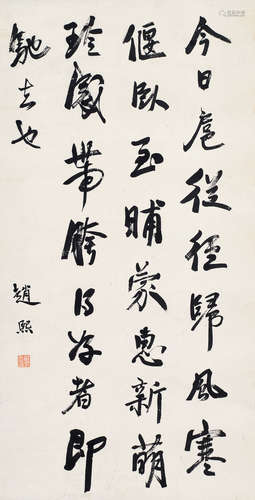 今日扈從徑歸風寒
偃臥至晡蒙惠新萌
珍感帶胯得存者即
馳去也
趙熙